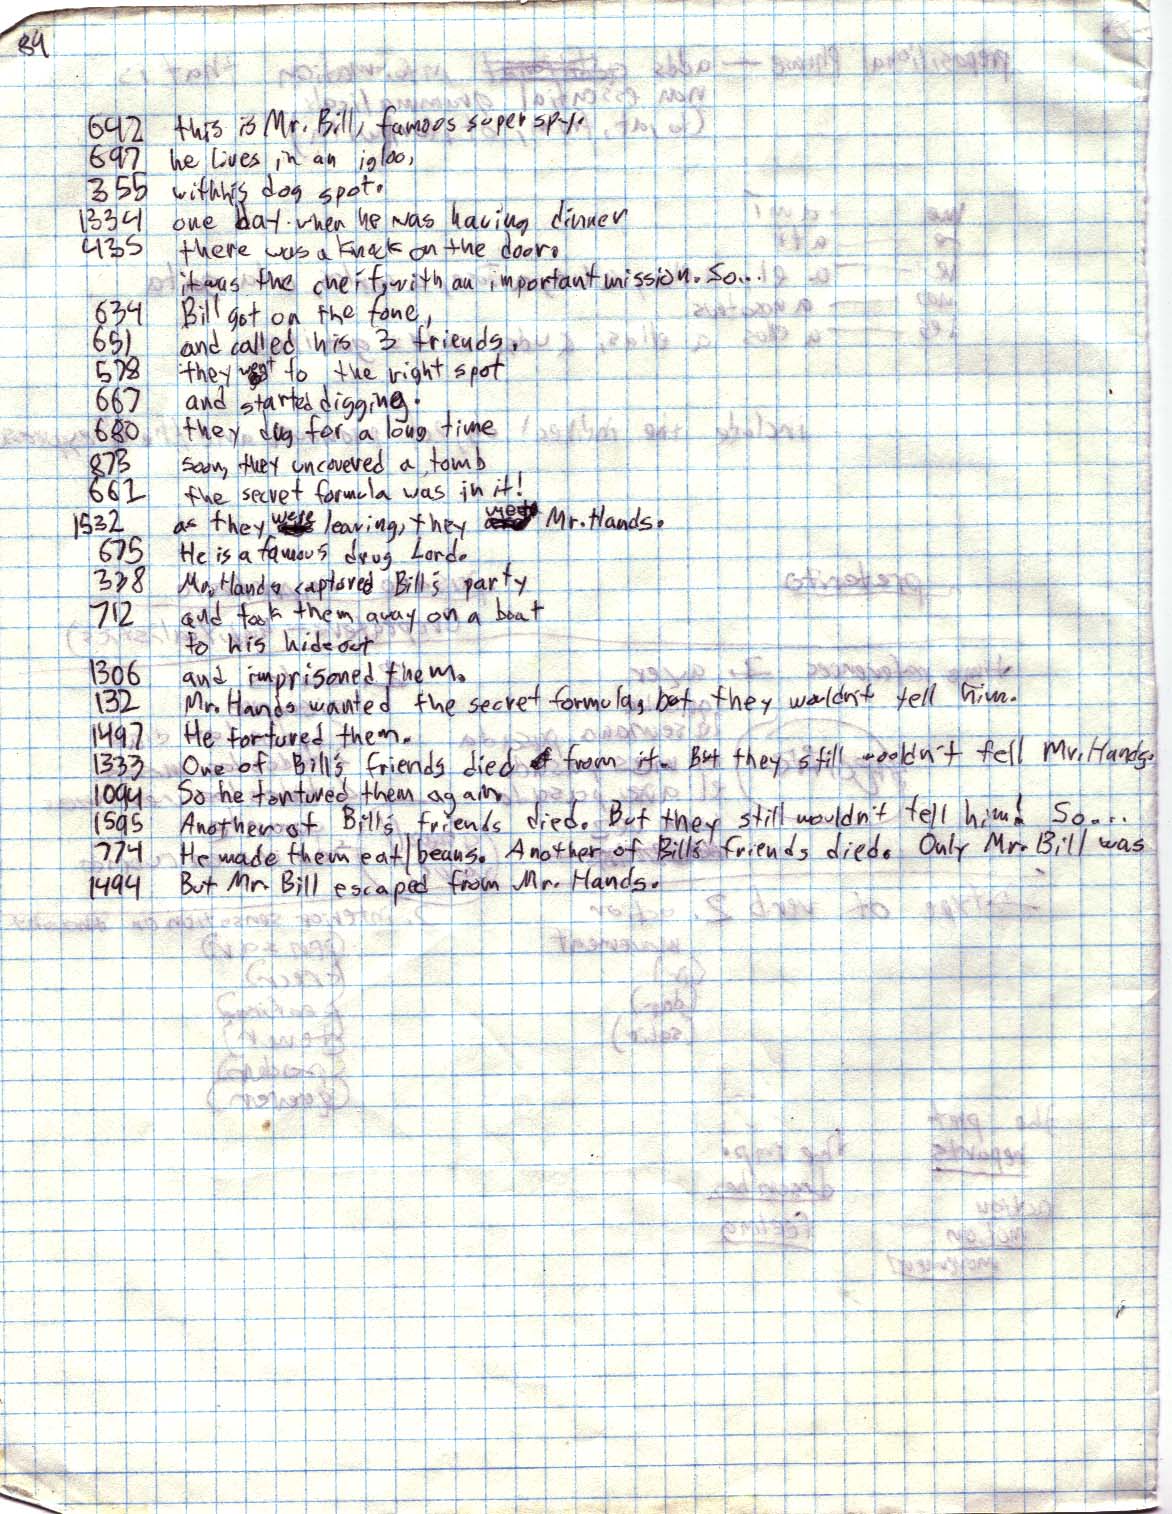 84
642 this is Mr. Bill, famoos super spy.
697 he lives in an igloo,
355 with his dog spot.
1334 one bay when he was having dinner
435 there was a knock on the door.
it was the cheif, with an important mission. So...
634 Bill got on the fone,
651 and called his 3 friends.
578 they to the right spot
667 and started digging.
680 they dug for a long time
873 soon, they uncovered a tomb
661 the secret formula was in it!
1532 as they were leaving, they meet Mr. Hands.
675 He is a famous drug Lord.
338 Mr. Hands captored Bill's party
712 and took them away on a boat
to his hideout
1306 and imprisoned them.
132 Mr. Hands wanted the secret formula, bot they wouldn't tell him.
1497 He tortured them.
1333 One of Bill's friends died from it. But they still wouldn't tell Mr. Hands.
1094 So he tortured them again
1595 Another of Bill's friends died. But they still wouldn't tell him! So...
774 He made them eat beans. Another of Bill's friends died. Only Mr. Bill was
1494 But Mr. Bill escaped from Mr. Hands.